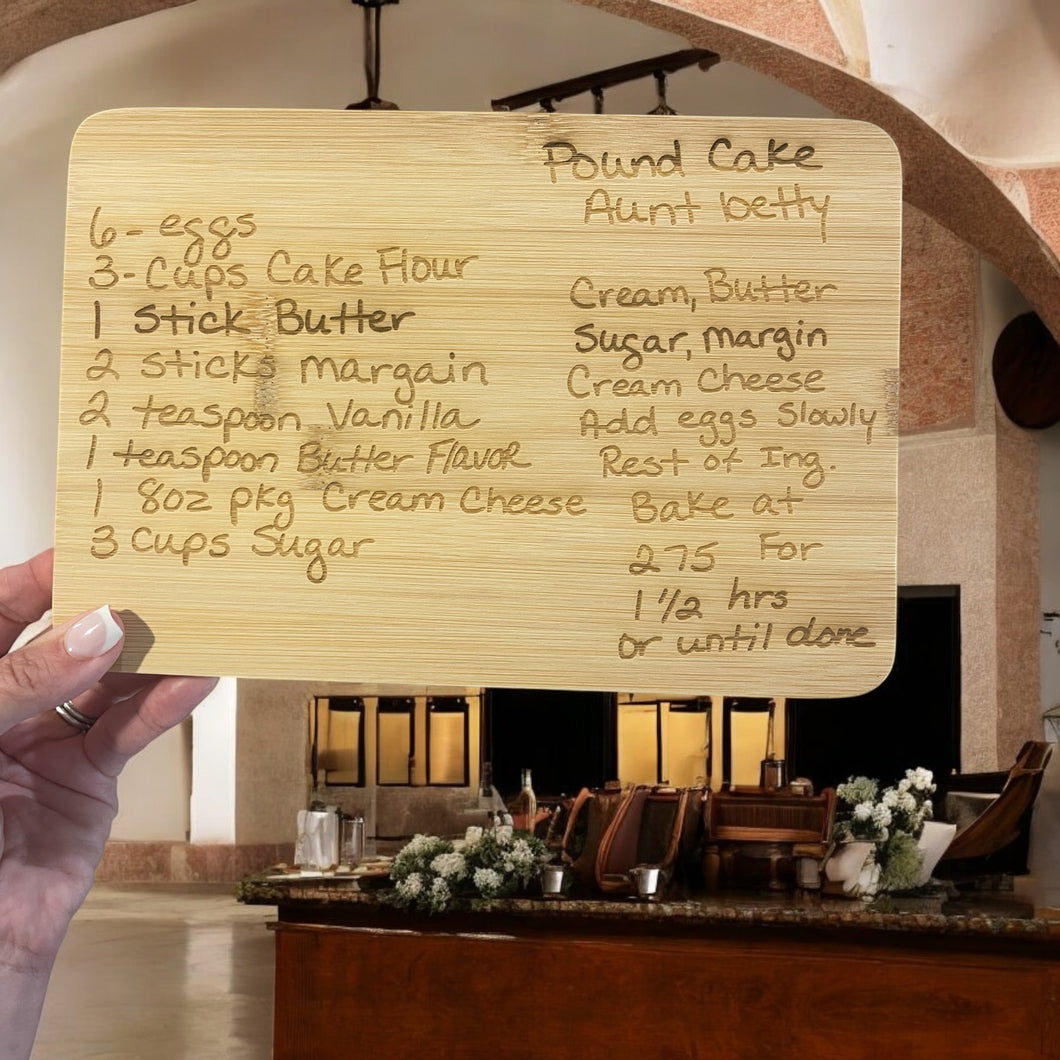 Pound Cake
Aunt betty
6- eggs
3- Cups Cake Flour
1 Stick Butter
2 sticks margain
2 teaspoon Vanilla
1 teaspoon Butter Flavor
1 8oz pkg Cream Cheese
3 Cups Sugar
Cream, Butter
Sugar, margin
Cream Cheese
Add eggs Slowly
Rest of Ing.
Bake at
275 For
1 1/2 hrs
or until done